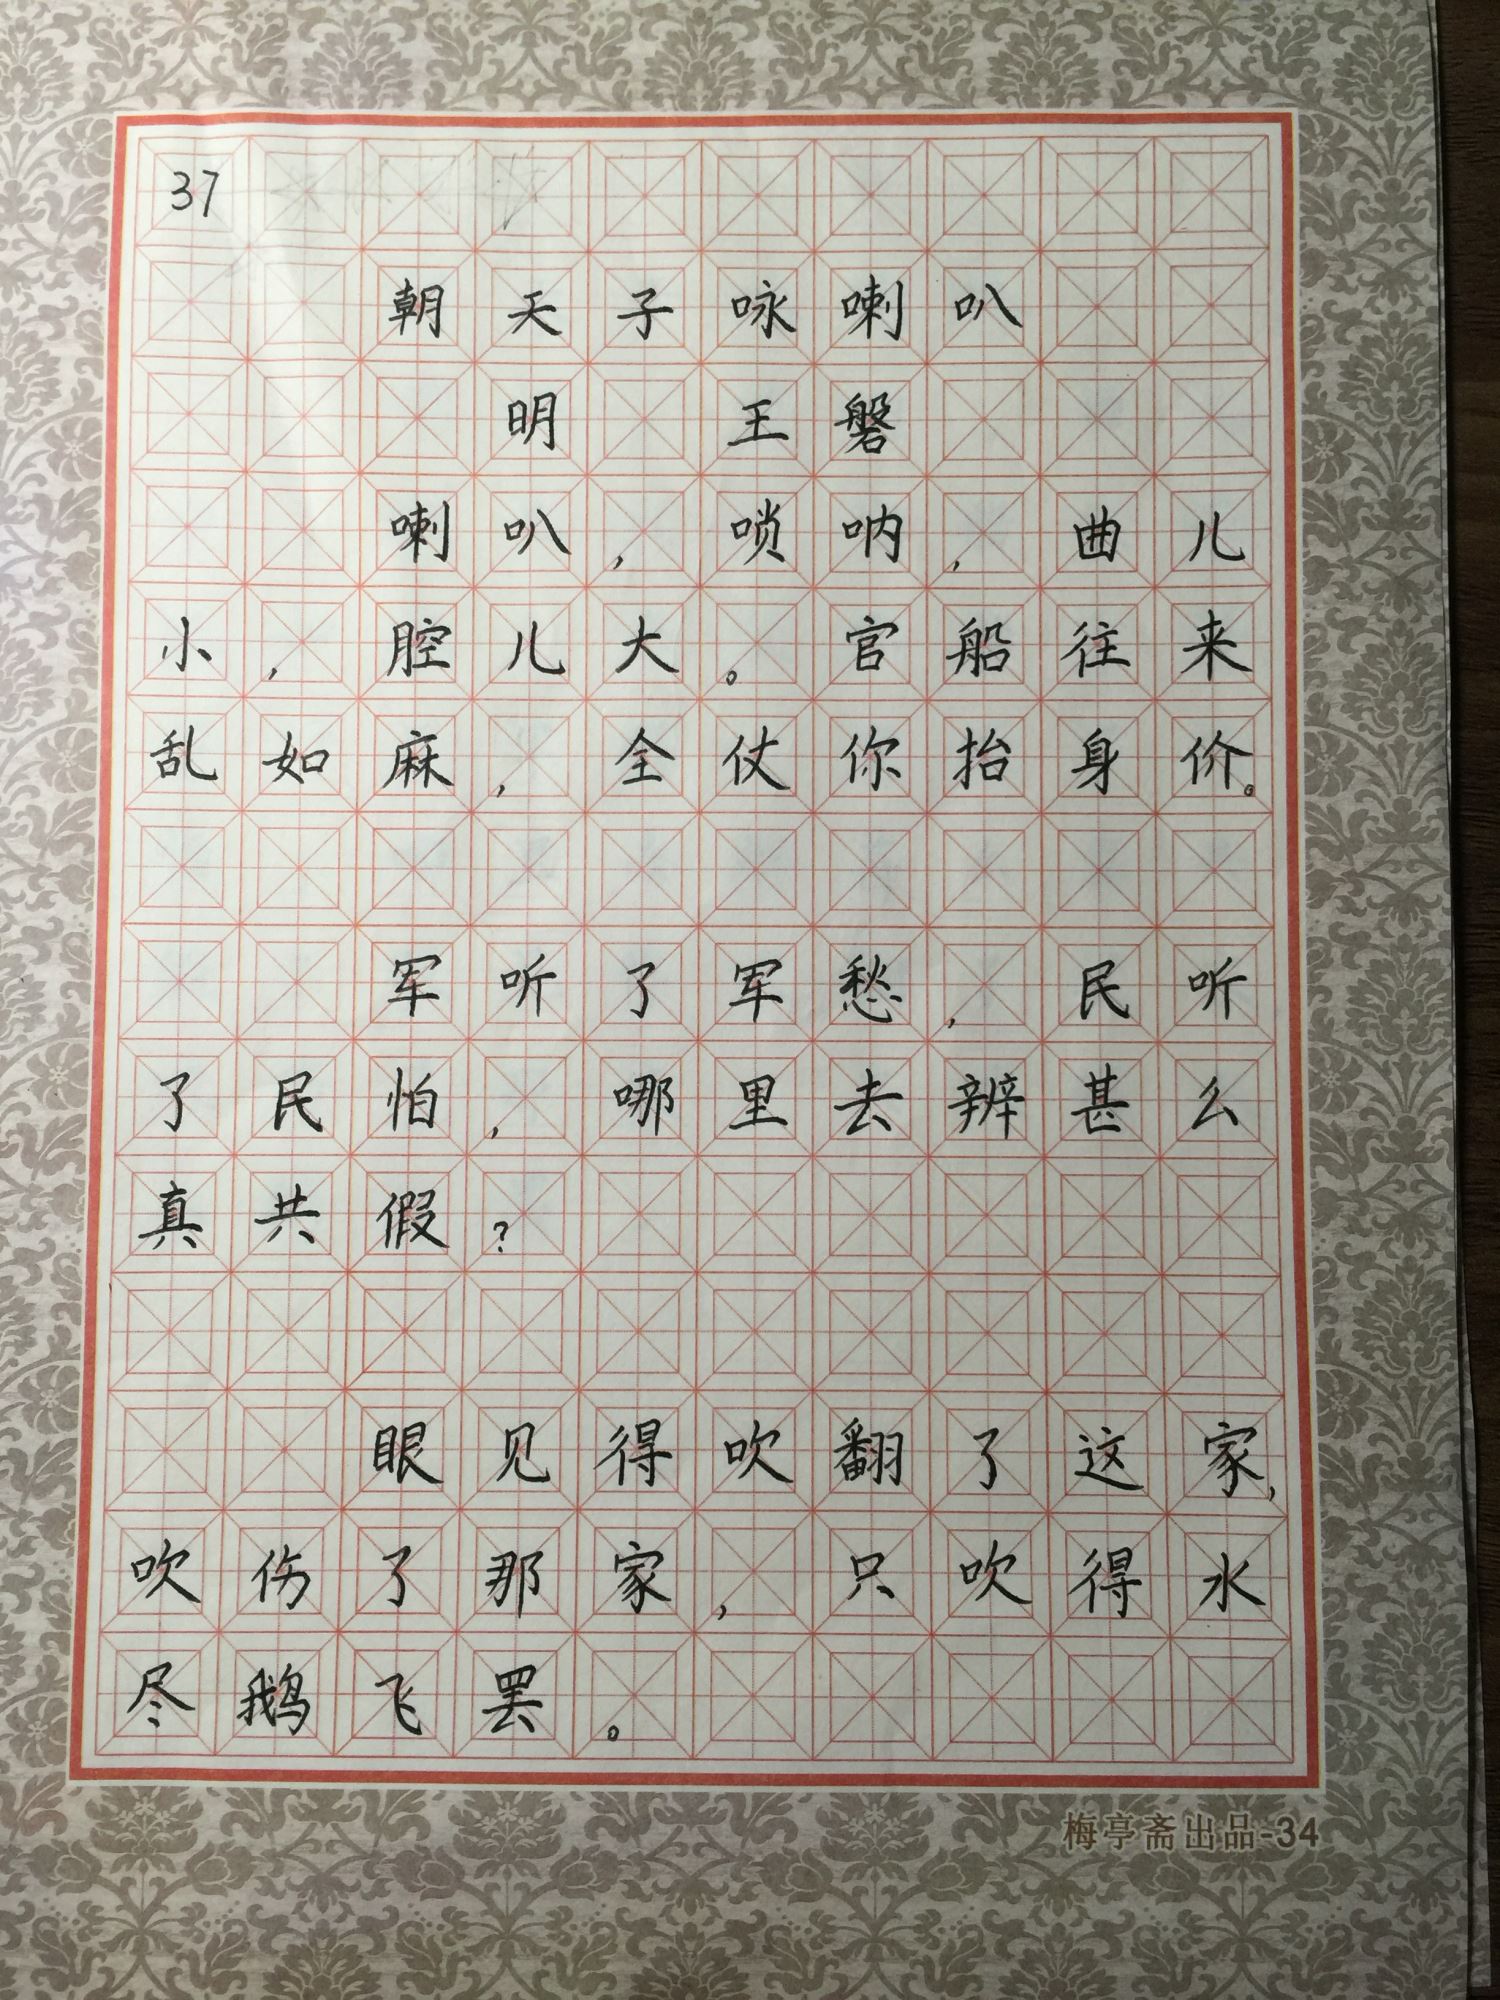 37
朝天子咏喇叭
明 王磐
喇叭，唢呐，曲儿
小，腔儿大。官船往来
乱如麻，全仗你抬身价。
军听了军愁，民听
了民怕，哪里去辨甚么
真共假？
眼见得吹翻了这家，
吹伤了那家，只吹得水
尽鹅飞罢。
梅亭斋出品-34